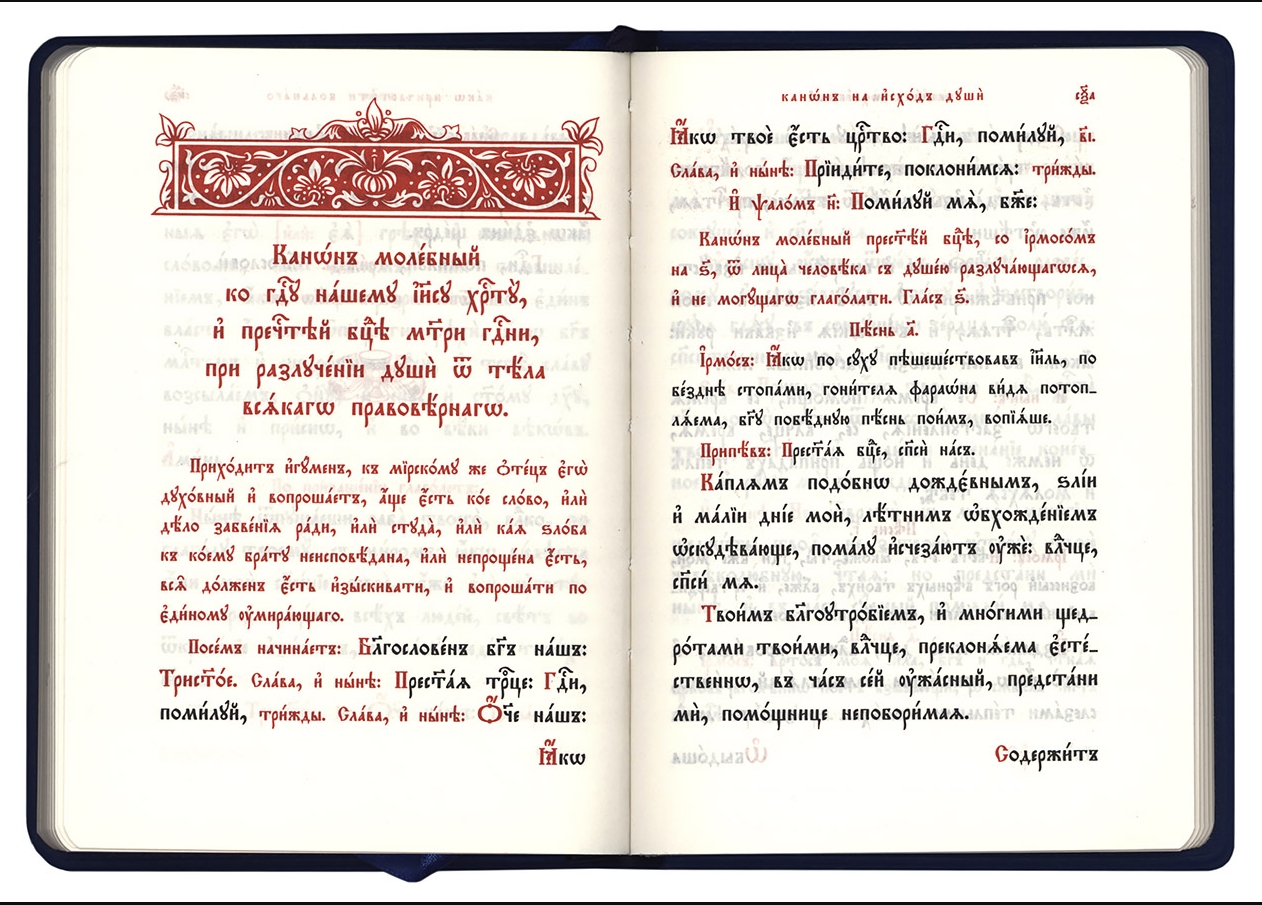 Канѡ́нъ моле́бный
ко гдⷭ҇ꙋ на́шемꙋ і҆и҃сꙋ хрⷭ҇тꙋ̀,
и҆ пречⷭ҇тѣй бцⷣѣ мт҃ри гдⷭ҇ни,
при разлꙋче́нїи дꙋшѝ ѿ тѣ́ла
всѧ́кагѡ правовѣ́рнагѡ.
Прихо́дитъ и҆гꙋ́менъ, къ мїрско́мꙋ же ѻ҆те́цъ є҆гѡ̀
дꙋхо́вный и҆ вопроша́етъ, а҆́ще є҆́сть ко́е сло́во, и҆лѝ
дѣ́ло забве́нїѧ ра́ди, и҆лѝ стꙋда̀, и҆лѝ ка́ѧ ѕло́ба
къ ко́емꙋ бра́тꙋ неисповѣ́дана, и҆лѝ непроще́на є҆́сть,
всѧ̑ до́лженъ є҆́сть и҆зы́скивати, и҆ вопроша́ти по
є҆ди́номꙋ ᲂу҆мира́ющаго.
Посе́мъ начина́етъ: Блгⷭ҇ослове́нъ бг҃ъ на́шъ:
Трист҃о́е. Сла́ва, и҆ ны́нѣ: Прест҃а́ѧ трⷪ҇це: Гдⷭ҇и,
поми́лꙋй, три́жды. Сла́ва, и҆ ны́нѣ: Ѻ҆́ч҃е на́шъ:
Ꙗ҆́кѡ
канѡ́нъ на и҆схо́дъ дꙋшѝ
Ꙗ҆́кѡ твоѐ є҆́сть црⷭ҇тво: Гдⷭ҇и, поми́лꙋй, в҃і.
Сла́ва, и҆ ны́нѣ: Прїиди́те, поклони́мсѧ: три́жды.
И҆ ѱало́мъ н҃: Поми́лꙋй мѧ̀, бж҃е:
Канѡ́нъ моле́бный прест҃ѣ́й бцⷣѣ, со і҆рмосо́мъ
на ѕ҃, ѿ лица̀ человѣ́ка съ дꙋше́ю разлꙋча́ющагѡсѧ,
и҆ не могꙋ́щагѡ глаго́лати. Гла́съ ѕ҃.
Пѣ́снь а҃.
І҆рмо́съ: Ꙗ҆́кѡ по сꙋ́хꙋ пѣшеше́ствовавъ і҆и҃ль, по
бе́зднѣ стопа́ми, гони́телѧ фараѡ́на ви́дѧ потоп_
лѧ́ема, бг҃ꙋ побѣ́днꙋю пѣ́снь пои́мъ, вопїѧ́ше.
Припѣ́въ: Прест҃а́ѧ бцⷣе, сп҃сѝ на́съ.
Ка́плѧмъ подо́бнѡ дожде́внымъ, ѕлі́и
и҆ ма́лїи дні́е моѝ, лѣ́тнимъ ѡ҆бхожде́нїемъ
ѡ҆скꙋдѣва́юще, пома́лꙋ и҆счеза́ютъ ᲂу҆жѐ: влⷣчце,
сп҃сѝ мѧ̀.
Твои́мъ блгⷭ҇оꙋтро́бїемъ, и҆ мно́гими щед_
ро́тами твои́ми, влⷣчце, преклонѧ́ема є҆сте́_
ственнѡ, въ ча́съ се́й ᲂу҆жа́сный, предста́ни
мѝ, помо́щнице непобори́маѧ.
Содержи́тъ